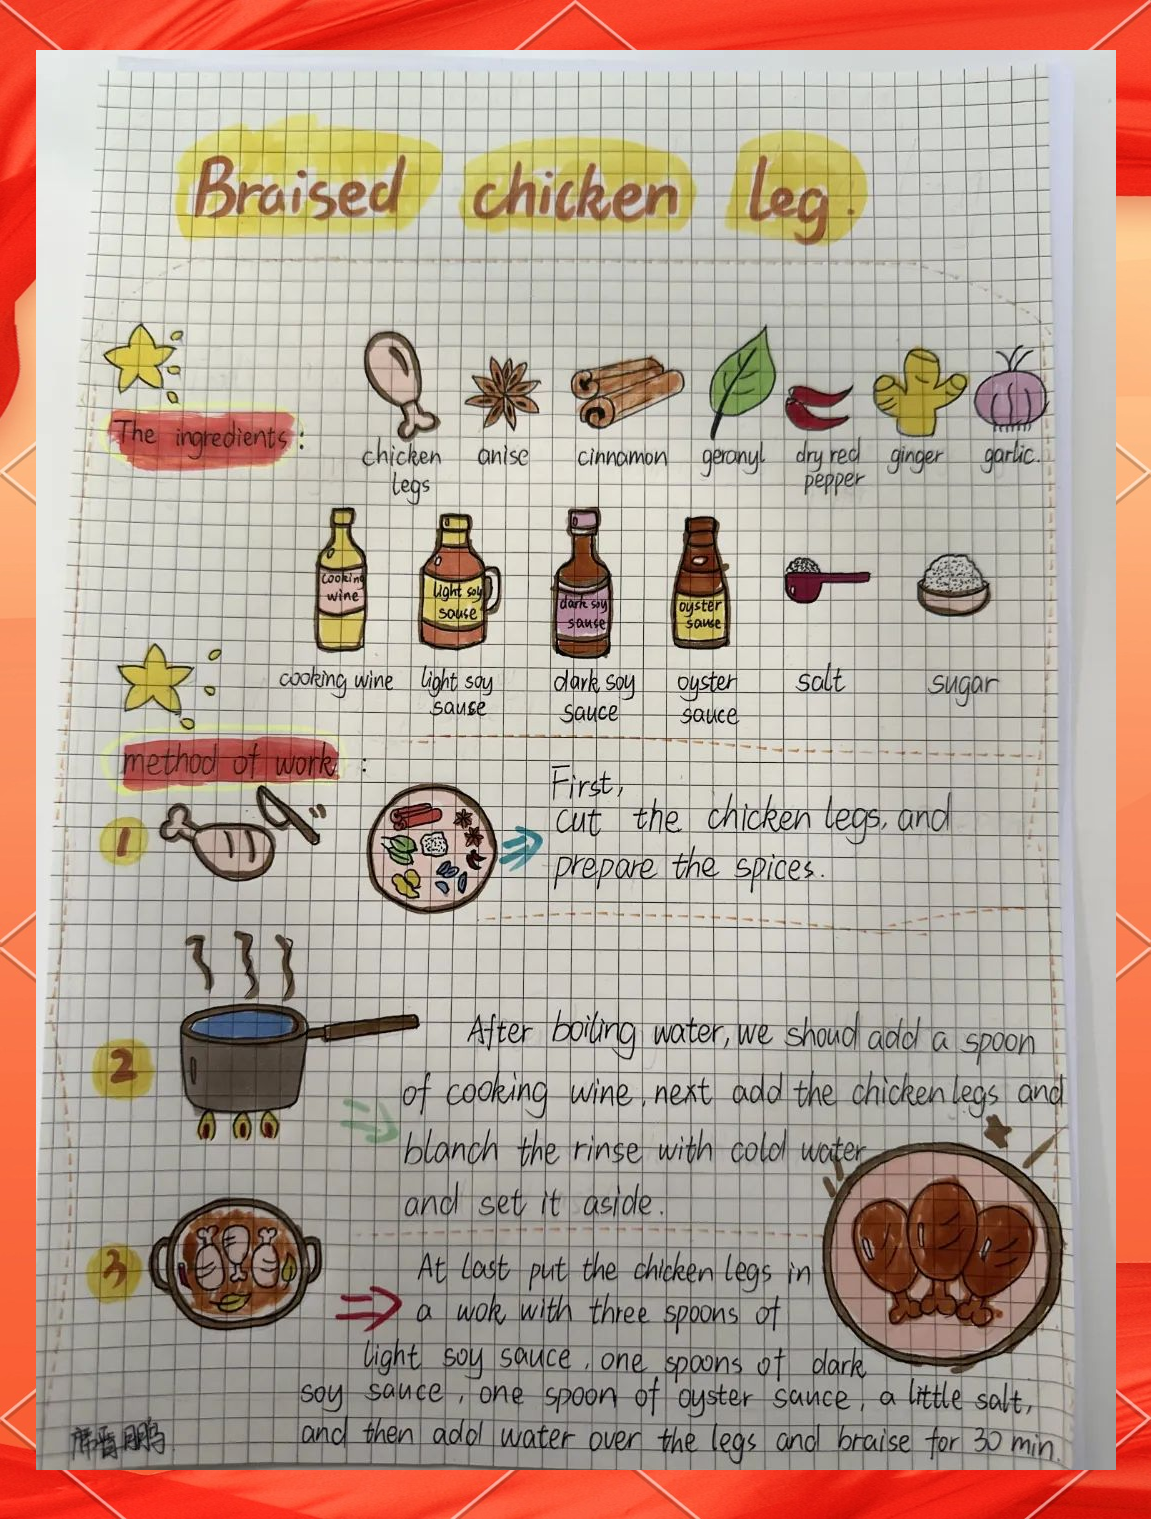 Braised chicken leg.
The ingredients:
chicken legs
anise
cinnamon
geranyl
dry red pepper
ginger
garlic.
cooking wine
light soy sause
dark soy sause
oyster sause
cooking wine
light soy sause
dark soy sauce
oyster sauce
salt
sugar
method of work:
1
First,
cut the chicken legs, and
prepare the spices.
2
After boiling water, we shoud add a spoon
of cooking wine, next add the chicken legs and
blanch the rinse with cold water
and set it aside.
3
At last put the chicken legs in
a wok with three spoons of
light soy sauce, one spoons of dark
soy sauce, one spoon of oyster sauce, a little salt,
and then add water over the legs and braise for 30 min.